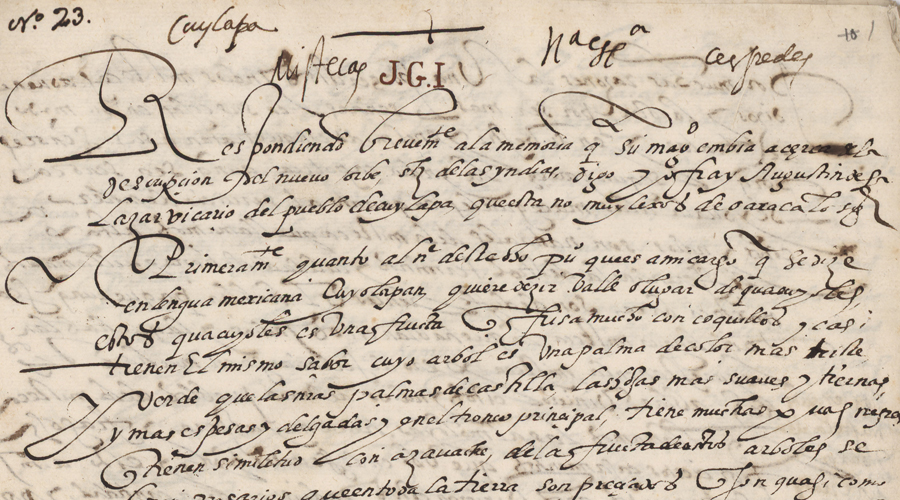 No. 23.
Cuylapa
Mistecas J.G.I nª espª cespedes
Respondiendo brevemte a la memoria q su magd embia acerca de la
Descripcion Del nuevo orbe, de las yndias, digo yo fray Augustin de
Salazar vicario del pueblo de cuylapa, questa no muy lexos de oaxaca lo
Primeramte quanto al nº del Re dho pu ques a mi cargo q se dize
en lengua mexicana Cuyolapan, quiere dezir Valle o lugar de quacuyoles
estos quacuyoles es Una fruta frisa mucho con coquillos y casi
tienen El mismo sabor cuyo arbol es Una palma de color mas
Verde que las nras palmas de castilla las hojas mas suaves y tiernas,
y mas espesas y delgadas y en el tronco principal, tiene muchas puas negras
tienen similitud con azavache, de la fruta de estos arboles se
rosarios que en toda la tierra son preciados Son quasi como